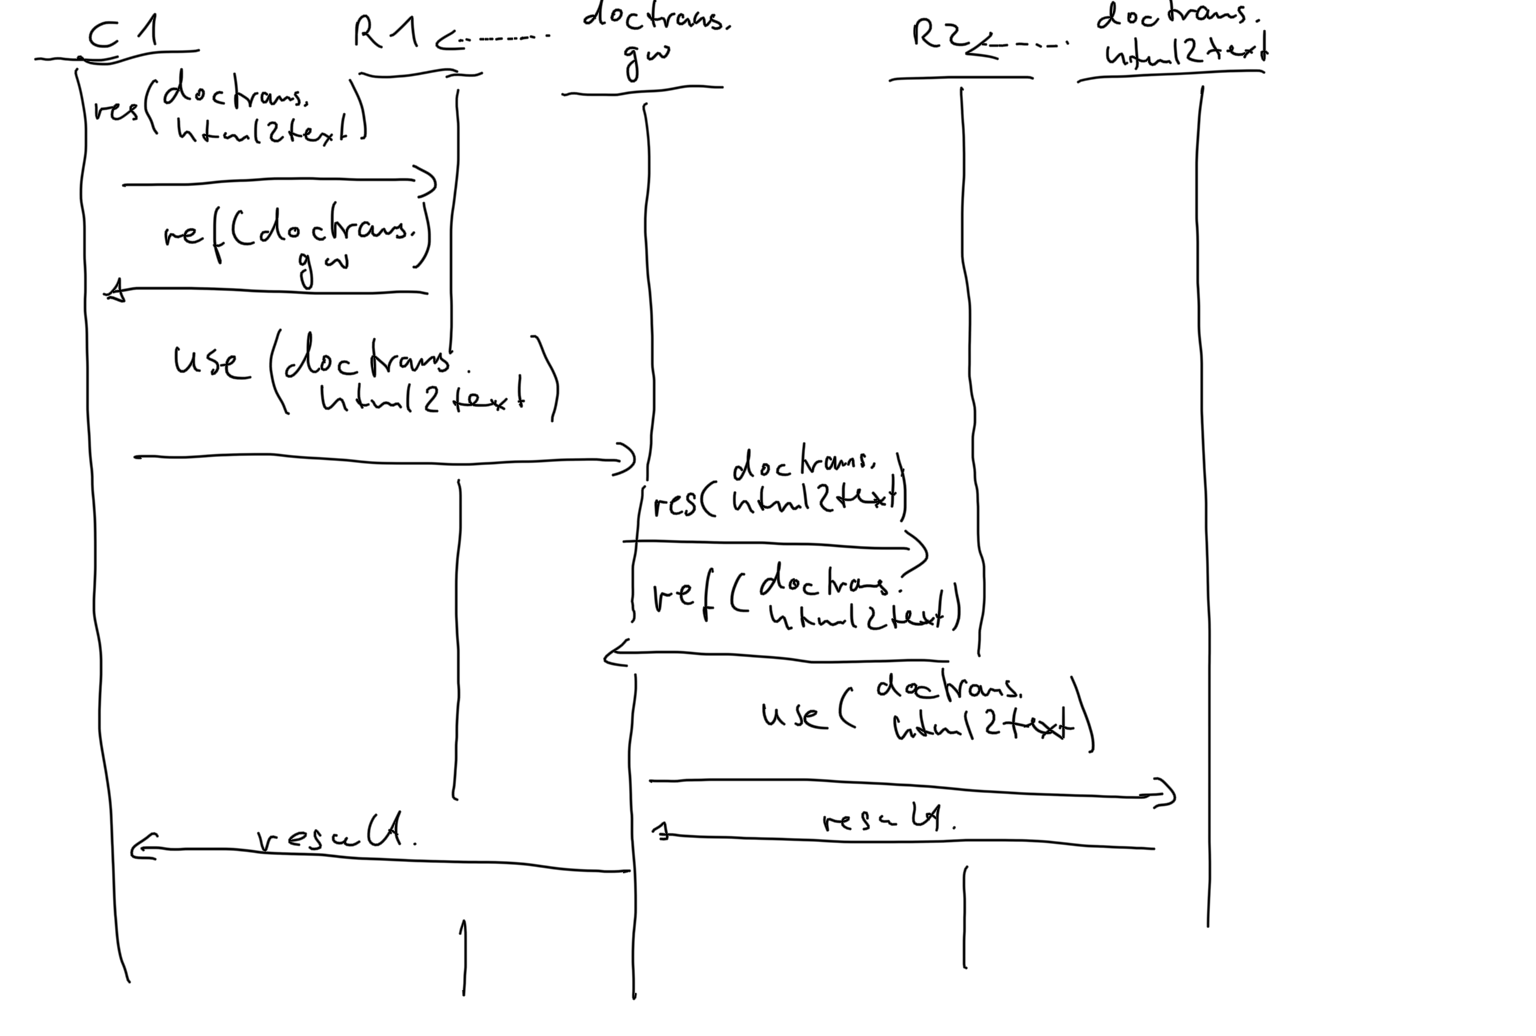 C1
R1
doctrans.
gw
R2
doctrans.
html2text
res(doctrans.
html2text)
ref(doctrans.
gw)
use (doctrans.
html2text)
res(doctrans.
html2text)
ref(doctrans.
html2text)
use(doctrans.
html2text)
result.
result.